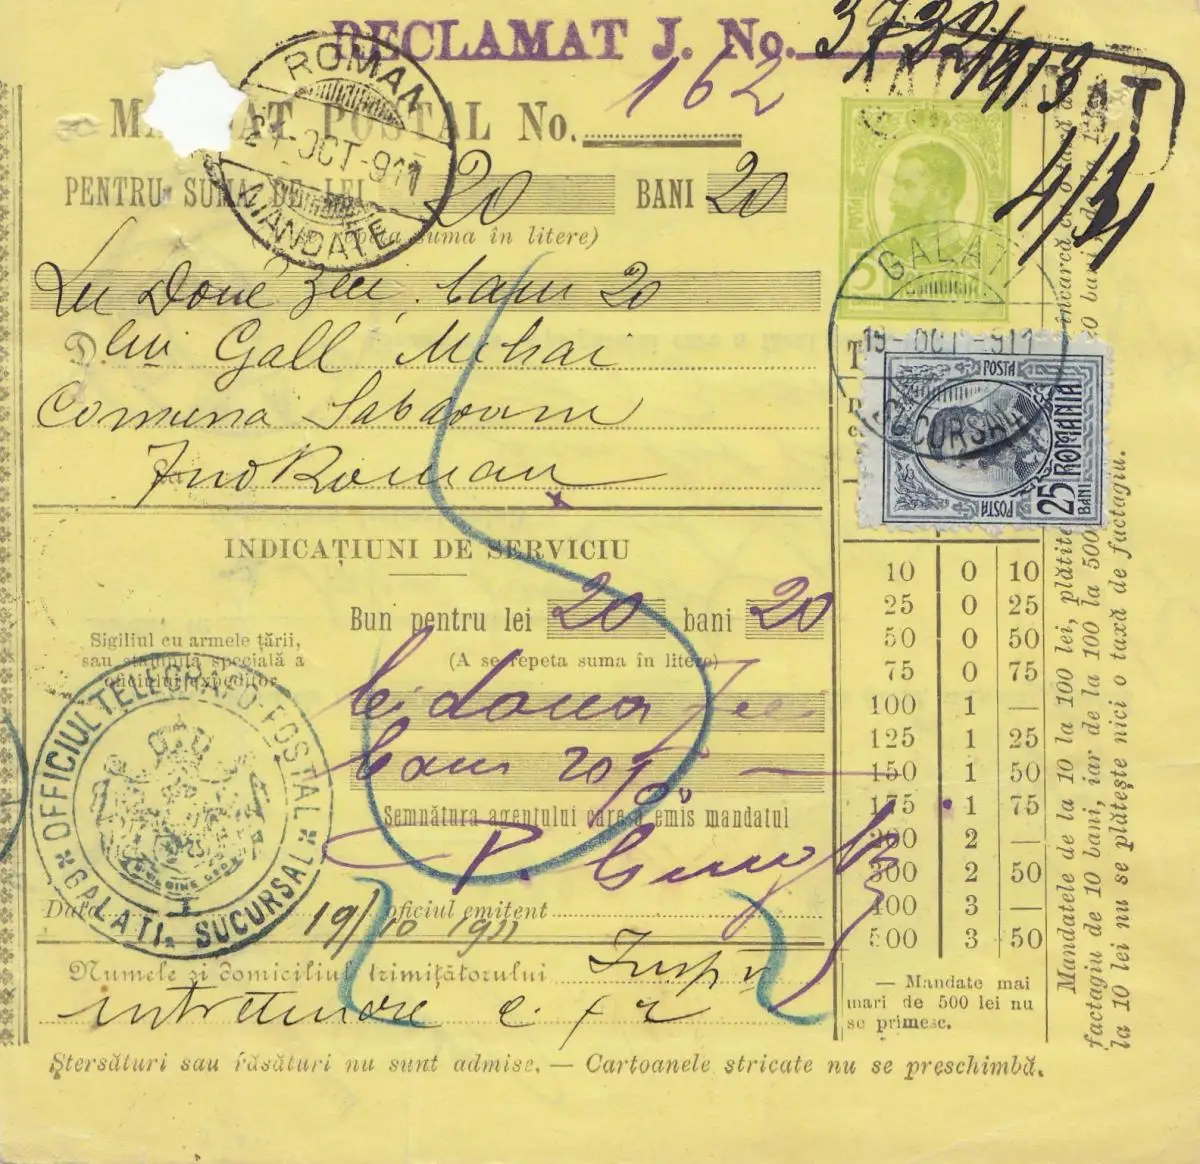 RECLAMAT J. No. 3732/913
162
MANDAT POSTAL No.
4/31
ROMAN
21 OCT 911
MANDATE
PENTRU SUMA DE LEI 20 BANI 20
(A se repeta suma în litere)
Lei Doué zeci, bani 20
Dlui Gall Mihai
Comuna Sabaoani
Jud Roman
GALATI
19 OCT 911
SUCURSALA
POSTA
5
POSTA
ROMANIA
25 BANI
POSTA
INDICAȚIUNI DE SERVICIU
Bun pentru lei 20 bani 20
(A se repeta suma în litere)
Sigiliul cu armele țării,
sau stampila specială a
oficiului expeditor
lei doua zeci
bani 20
Semnătura agentului care a emis mandatul
OFFICIUL TELEGRAFO-POSTAL
GALATI SUCURSAL
Data 19/10 1911 oficiul emitent
Numele și domiciliul trimițătorului
intretinere c. f r
10 0 10
25 0 25
50 0 50
75 0 75
100 1 —
125 1 25
150 1 50
175 1 75
200 2 —
300 2 50
400 3 —
500 3 50
— Mandate mai
mari de 500 lei nu
se primesc.
Mandatele de la 10 la 100 lei, plătite
factagiu de 10 bani, iar de la 100 la 500
la 10 lei nu se plătește nici o taxă de factagiu.
Ștersături sau răsături nu sunt admise. — Cartoanele stricate nu se preschimbă.